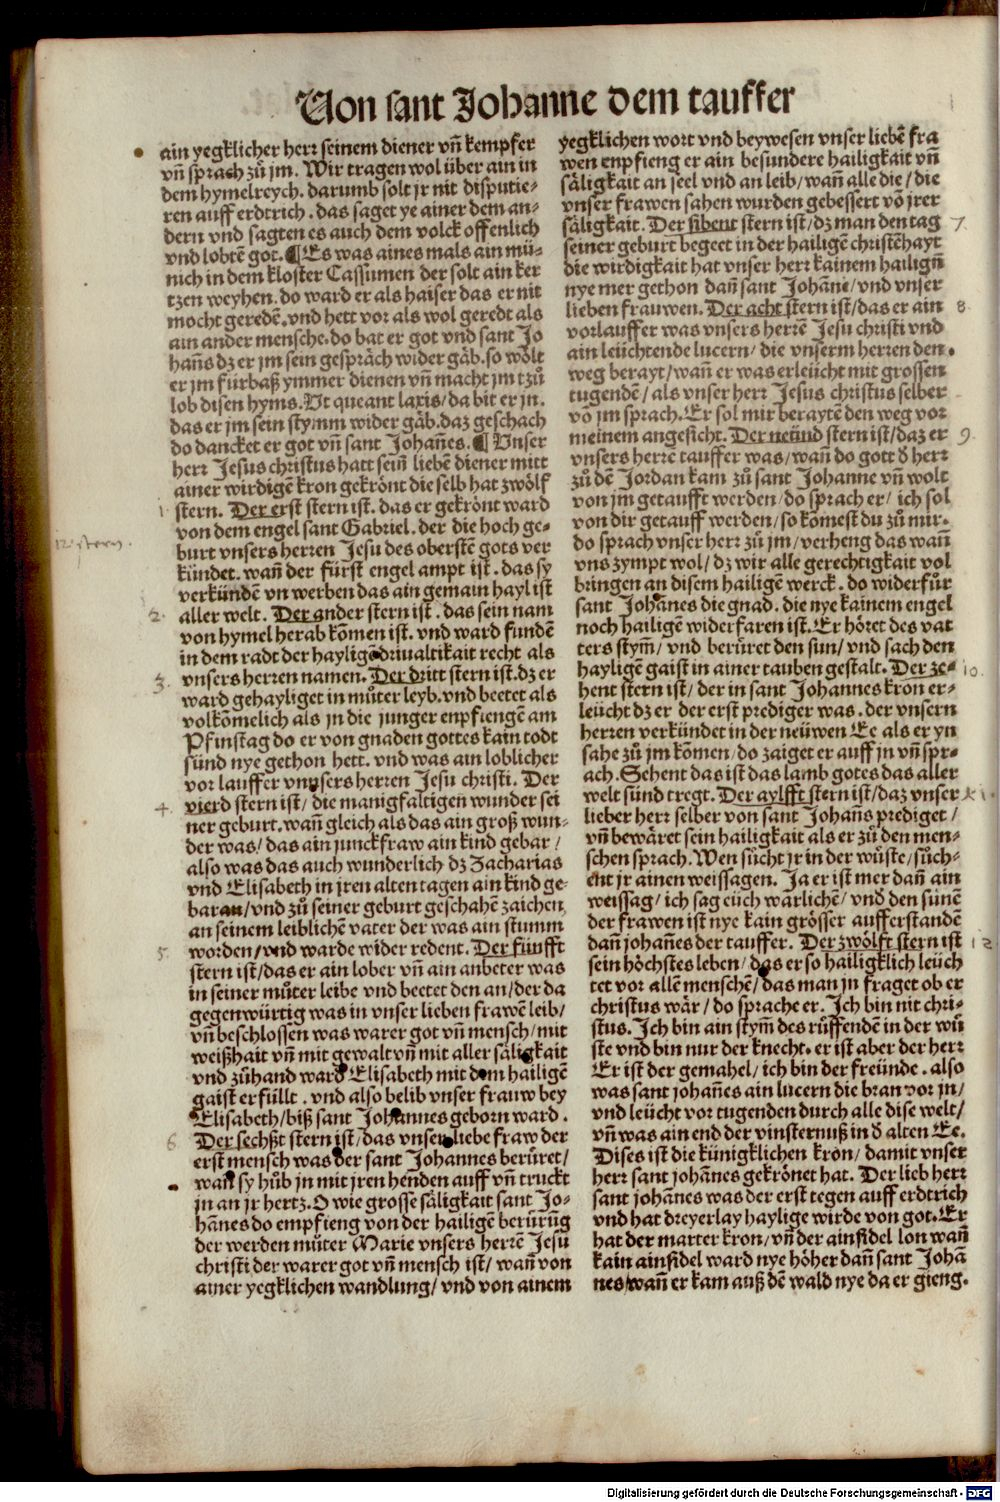 Uon sant Johanne dem tauffer
ain yegklicher herr seinem diener vn̄ kempfer
vn̄ sprach zů jm. Wir tragen wol über ain in
dem hymelreych. darumb solt jr nit disputie-
ren auff erdtrich. das saget ye ainer dem an-
dern vnd sagten es auch dem volck offenlich
vnd lobtē got. ¶ Es was aines mals ain mü-
nich in dem kloster Cassumen der solt ain ker
tzen weyhen. do ward er als haiser das er nit
mocht geredē. vnd hett vor als wol geredt als
ain ander mensche. do bat er got vnd sant Jo
hañs dz er jm sein gespräch wider gäb. so wölt
er jm fürbaß ymmer dienen vn̄ macht jm tzů
lob disen hyms. Ut queant laxis / da bit er jn.
das er jm sein stymm wider gäb. daz geschach
do dancket er got vn̄ sant Johañes. ¶ Unser
herr Jesus christus hatt sein̄ liebē diener mitt
ainer wirdigē kron gekrönt die selb hat zwölf
1 stern. Der erst stern ist. das er gekrönt ward
von dem engel sant Gabriel. der die hoch ge-
12 stern.
burt vnsers herren Jesu des oberstē gots ver
kündet. wañ der fürst engel ampt ist. das sy
verkündē vn werben das ain gemain hayl ist
2. aller welt. Der ander stern ist. das sein nam
von hymel herab kōmen ist. vnd ward fundē
in dem radt der hayligē driualtikait recht als
3. vnsers herren namen. Der dritt stern ist. dz er
ward gehayliget in můter leyb. vnd beetet als
volkōmelich als jn die junger enpfiengē am
Pfinstag do er von gnaden gottes kain todt
sünd nye gethon hett. vnd was ain loblicher
vor lauffer vnnsers herren Jesu christi. Der
4. vierd stern ist / die manigfaltigen wunder sei
ner geburt. wañ gleich als das ain groß wun-
der was / das ain junckfraw ain kind gebar /
also was das auch wunderlich dz Zacharias
vnd Elisabeth in jren alten tagen ain kind ge-
baran / vnd zů seiner geburt geschahē zaichen
an seinem leiblichē vater der was ain stumm
5. worden / vnd warde wider redent. Der fünfft
stern ist / das er ain lober vn̄ ain anbeter was
in seiner můter leibe vnd beetet den an / der da
gegenwürtig was in vnser lieben frawē leib /
vn̄ beschlossen was warer got vn̄ mensch / mit
weißhait vn̄ mit gewalt vn̄ mit aller säligkait
vnd zůhand ward Elisabeth mit dem hailigē
gaist erfüllt. vnd also belib vnser frauw bey
Elisabeth / biß sant Johannes geborn ward.
6 Der sechßt stern ist / das vnser liebe fraw der
erst mensch was der sant Johannes berüret /
wañ sy hůb jn mit jren henden auff vn̄ truckt
jn an jr hertz. O wie grosse säligkait sant Jo-
hānes do empfieng von der hailigē berürūg
der werden můter Marie vnsers herrē Jesu
christi der warer got vn̄ mensch ist / wañ von
ainer yegklichen wandlung / vnd von ainem
yegklichen wort vnd beywesen vnser liebē fra
wen enpfieng er ain besundere hailigkait vn̄
säligkait an seel vnd an leib / wañ alle die / die
vnser frawen sahen wurden gebessert vō jrer
säligkait. Der sibent stern ist / dz man den tag 7.
seiner geburt begeet in der hailigē christēhayt
die wirdigkait hat vnser herr kainem hailign̄
nye mer gethon dañ sant Johāni / vnd vnser
lieben frauwen. Der acht stern ist / das er ain 8.
vorlauffer was vnsers herrē Jesu christi vnd
ain leüchtende lucern / die vnserm herren den
weg berayt / wañ er was erleücht mit grossen
tugendē / als vnser herr Jesus christus selber
vō jm sprach. Er sol mir beraytē den weg vor
meinem angesicht. Der neünd stern ist / daz er 9.
vnsers herrē tauffer was / wañ do gott ð herr
zů dē Jordan kam zů sant Johanne vn̄ wolt
von jm getaufft werden / do sprach er / ich sol
von dir getauff werden / so kōmest du zů mir.
do sprach vnser herr zů jm / verheng das wañ
vns zympt wol / dz wir alle gerechtigkait vol
bringen an disem hailigē werck. do widerfůr
sant Johānes die gnad. die nye kainem engel
noch hailigē widerfaren ist. Er höret des vat
ters stym̄ / vnd berüret den sun / vnd sach den
hayligē gaist in ainer tauben gestalt. Der ze- 10.
hent stern ist / der in sant Johannes kron er-
leücht dz er der erst prediger was. der vnsern
herren verkündet in der neüwen Ee als er yn
sahe zů jm kōmen / do zaiget er auff jn vn̄ spr-
ach. Sehent das ist das lamb gotes das aller
welt sünd tregt. Der aylfft stern ist / daz vnser 11.
lieber herr selber von sant Johañs prediget /
vn̄ bewäret sein hailigkait als er zů den men-
schen sprach. Wen sůcht jr in der wůste / sůch-
ent jr ainen weissagen. Ja er ist mer dañ ain
weissag / ich sag euch warlichē / vnd den sünē
der frawen ist nye kain grösser aufferstandē
dañ johañes der tauffer. Der zwölft stern ist 12.
sein höchstes leben / das er so hailigklich leüch
tet vor allē menschē / das man jn fraget ob er
christus wär / do sprache er. Ich bin nit chri-
stus. Ich bin ain stym̄ des růffendē in der wů
ste vnd bin nur der knecht. er ist aber der herr
Er ist der gemahel / ich bin der freünde. also
was sant johañes ain lucern die bran vor jn /
vnd leücht vor tugenden durch alle dise welt /
vn̄ was ain end der vinsternuß in ð alten Ee.
Dises ist die künigklichen kron / damit vnser
herr sant johānes gekrönet hat. Der lieb herr
sant johānes was der erst tegen auff erdtrich
vnd hat dreyerlay haylige wirde von got. Er
hat der marter kron / vn̄ der ainsidel lon wañ
kain ainsidel ward nye höher dañ sant Johā
nes / wañ er kam auß dē wald nye da er gieng.
Digitalisierung gefördert durch die Deutsche Forschungsgemeinschaft - DFG